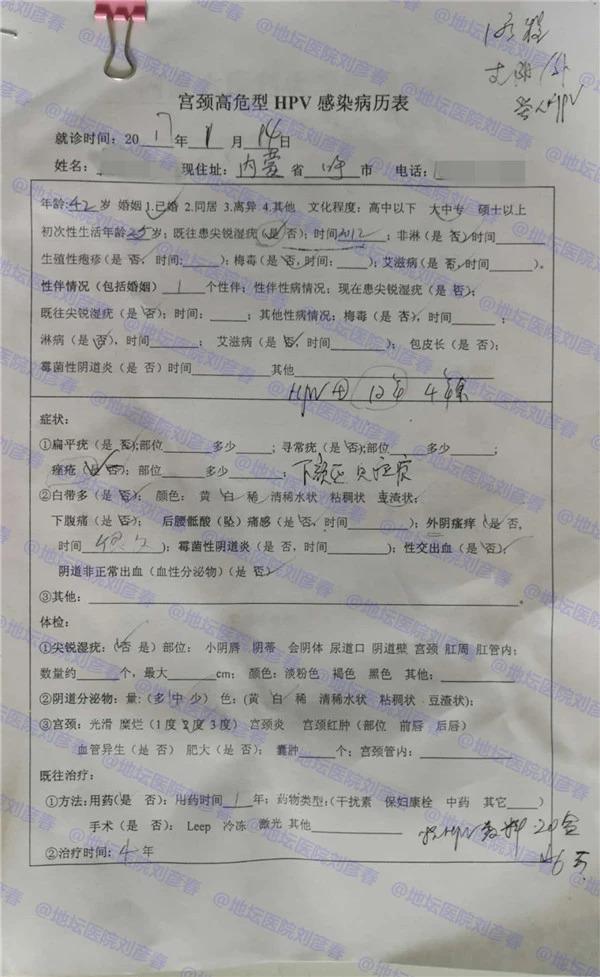 宫颈高危型 HPV 感染病历表
就诊时间：20 17 年 1 月 14 日
姓名： 现住址： 内蒙 省 市 电话：
年龄:42岁 婚姻 1.已婚 2.同居 3.离异 4.其他 文化程度：高中以下 大中专 硕士以上
初次性生活年龄25岁；既往患尖锐湿疣（是 否）；时间2012；非淋（是 否）时间
生殖性疱疹（是 否，时间：）；梅毒（是 否，时间：）；艾滋病（是 否，时间）。
性伴情况（包括婚姻） 1 个性伴；性伴性病情况：现在患尖锐湿疣（是 否）；
既往尖锐湿疣（是 否）；时间：；其他性病情况：梅毒（是 否），时间；
淋病（是 否），时间； 艾滋病（是 否，时间）； 包皮长（是 否）；
霉菌性阴道炎（是 否）时间 其他
HPV 4年
症状：
①扁平疣（是 否）;部位 多少；寻常疣（是 否）;部位 多少；
痤疮（是 否）；部位 多少；
②白带多（是 否）； 颜色： 黄 白 稀 清稀水状 粘稠状 豆渣状；
下腹痛（是 否）； 后腰骶酸（坠）痛感（是 否，时间）；外阴瘙痒（是 否，
时间）；霉菌性阴道炎（是 否，时间）；性交出血（是 否），
阴道非正常出血（血性分泌物）（是 否）
③其他：。
体检：
①尖锐湿疣：（否 是）部位： 小阴唇 阴蒂 会阴体 尿道口 阴道壁 宫颈 肛周 肛管内；
数量约个，最大cm； 颜色：淡粉色 褐色 黑色 其他：
②阴道分泌物：量：（多 中 少） 色：（黄 白 稀 清稀水状 粘稠状 豆渣状）；
③宫颈：光滑 糜烂（1度 2度 3度） 宫颈炎 宫颈红肿（部位 前唇 后唇）
血管异生（是 否） 肥大（是 否）； 囊肿个；宫颈管内：
既往治疗：
①方法：用药（是 否）；用药时间 1 年；药物类型：（干扰素 保妇康栓 中药 其它）
手术（是 否）： Leep 冷冻 激光 其他
抗HPV敷料 20盒
②治疗时间：4年
@地坛医院刘彦春